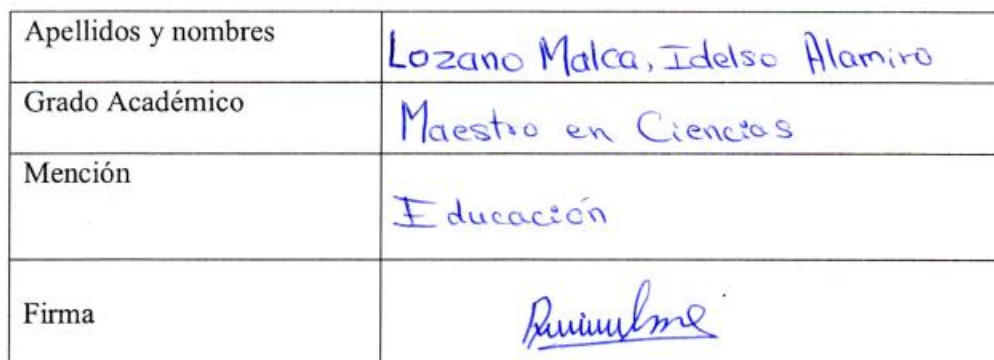 Apellidos y nombres Lozano Malca, Idelso Alamiro
Grado Académico Maestro en Ciencias
Mención Educación
Firma